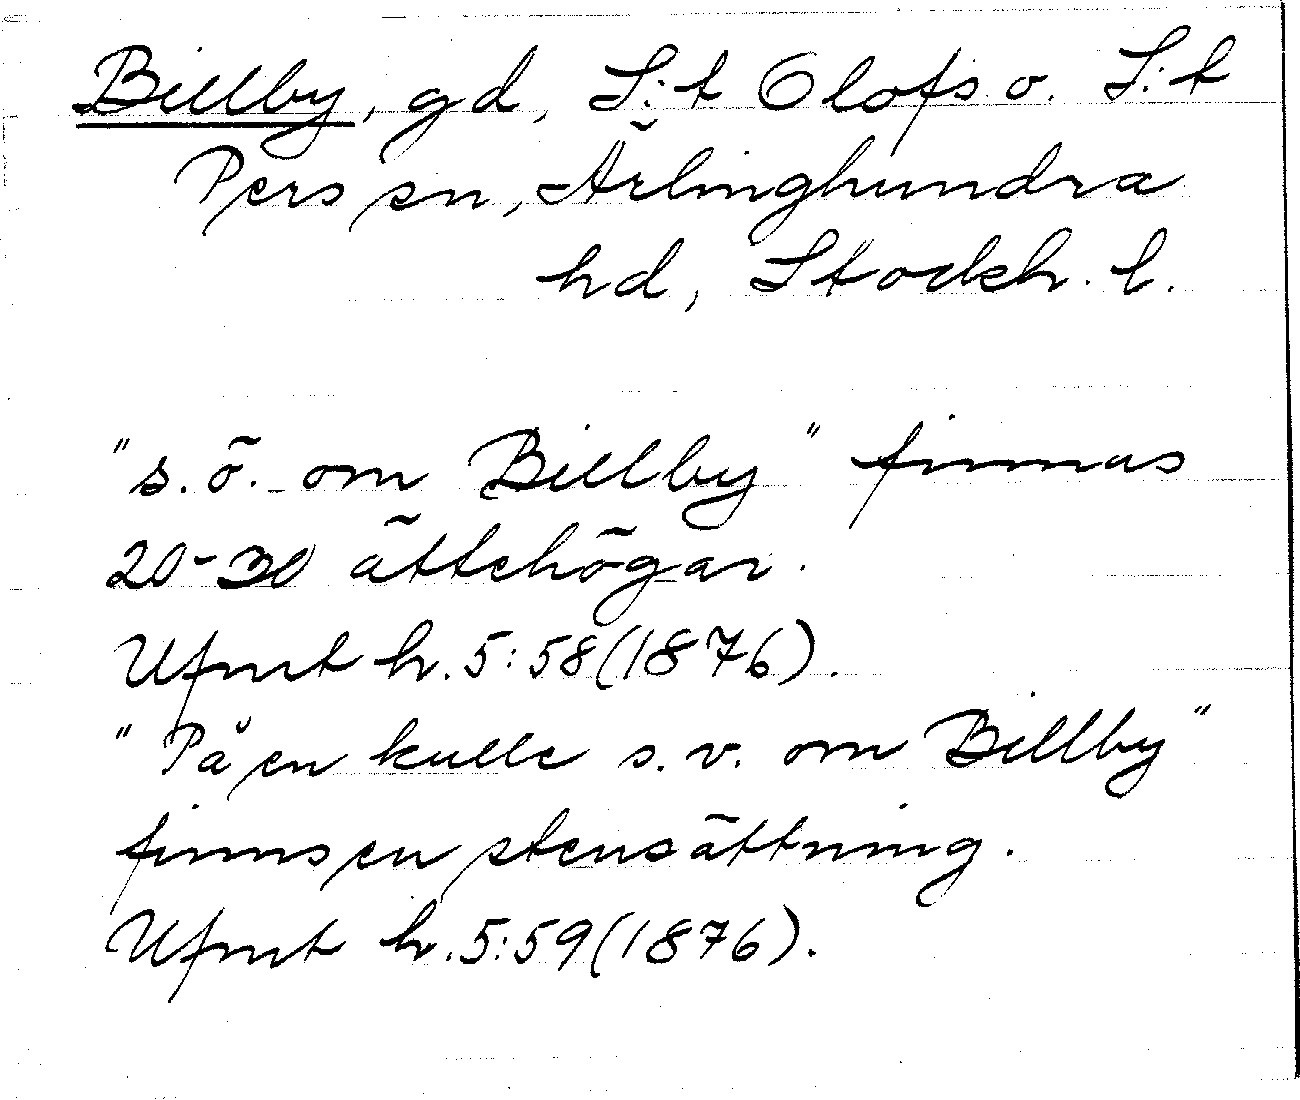 Billby, gd, S:t Olofs o. S:t
Pers sn, Ärlinghundra
hd, Stockh. l.
"s.ö. om Billby" finnas
20-30 ättehögar.
Ufmt h. 5:58 (1876).
"På en kulle s.v. om Billby"
finns en stensättning.
Ufmt h. 5:59 (1876).